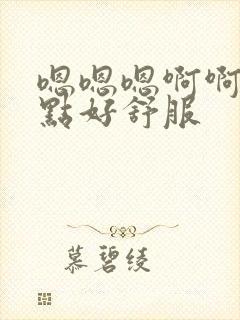 嗯嗯嗯啊啊
點好舒服
慕碧绫